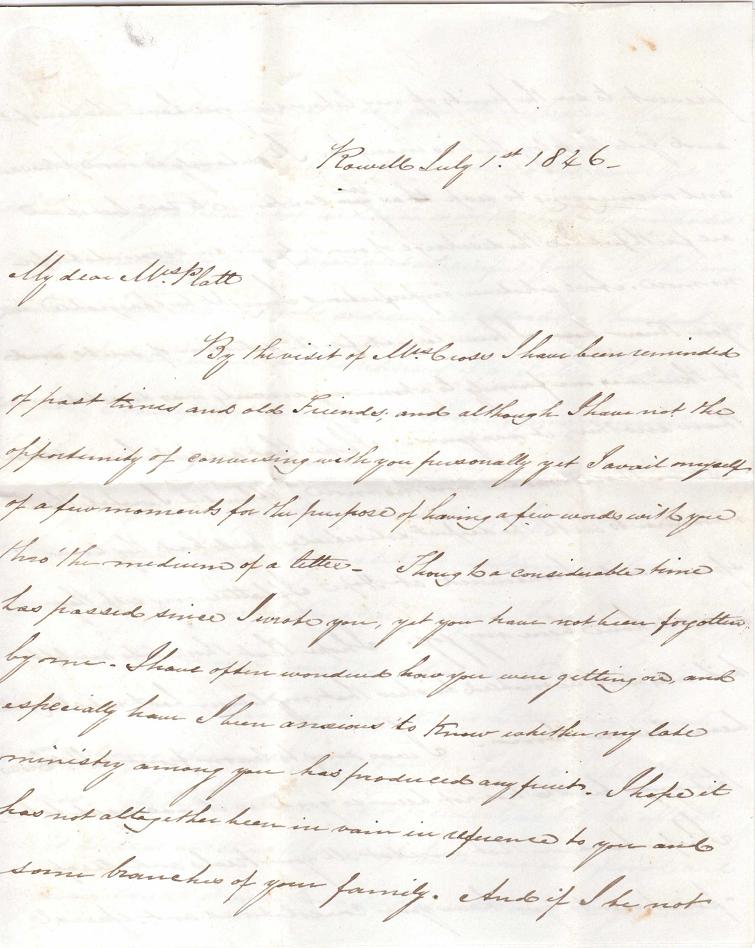 Rowell July 1st. 1846 -
My dear Mrs Platt
By the visit of Mrs Cross I have been reminded
of past times and old Friends, and although I have not the
opportunity of conversing with you personally yet I avail myself
of a few moments for the purpose of having a few words with you
thro' the medium of a letter - Though a considerable time
has passed since I wrote you, yet you have not been forgotten
by me - I have often wondered how you were getting on, and
especially have I been anxious to know whether my late
ministry among you has produced any fruit. I hope it
has not altogether been in vain in reference to you and
some branches of your family. And if I be not